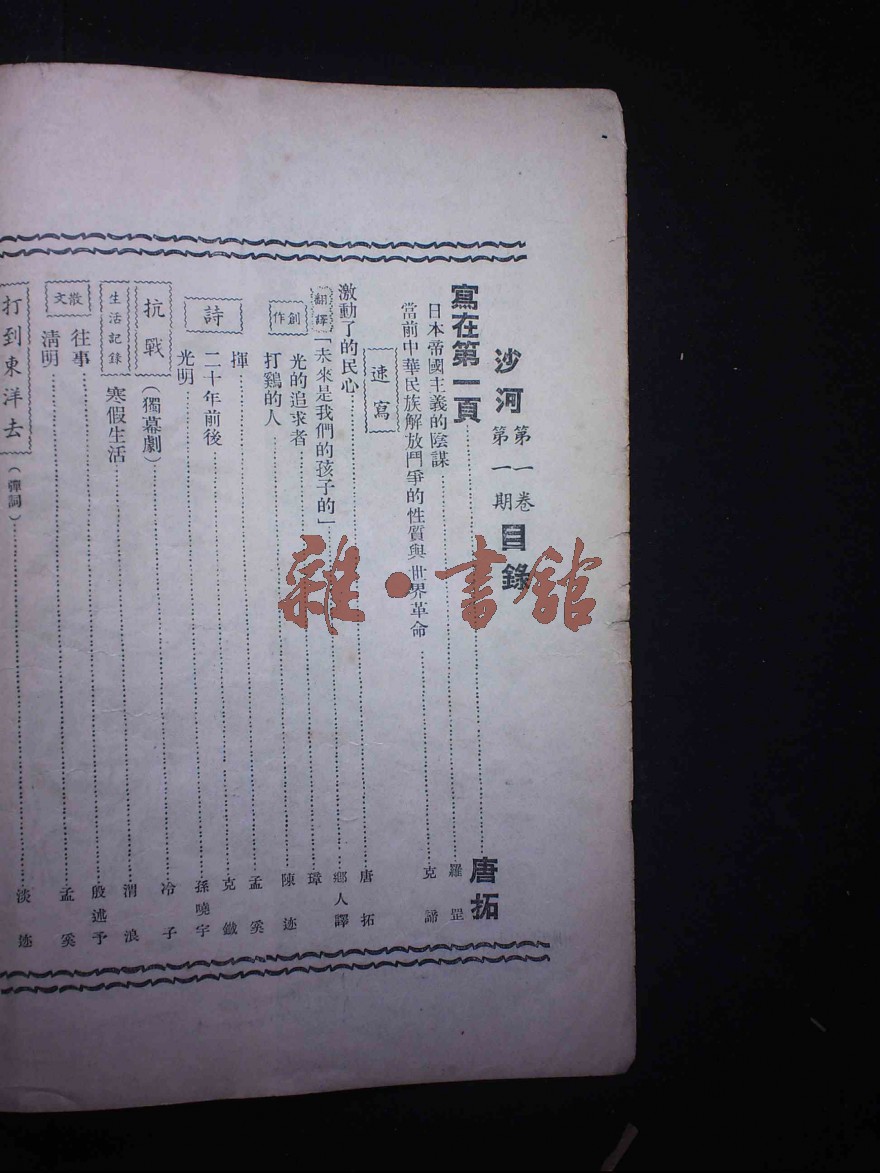 沙河 第一卷 第一期 目錄
寫在第一頁 唐拓
日本帝國主義的陰謀 羅罡
當前中華民族解放鬥爭的性質與世界革命 克諦
速寫
激動了的民心 唐拓
翻譯
「未來是我們的孩子的」 鄉人譯
創作
光的追求者 瑋
打鷄的人 陳迹
詩
揮 孟奚
二十年前後 克鐵
光明 孫曉宇
抗戰 (獨幕劇) 冷子
生活記錄
寒假生活 渭浪
散文
往事 殷述予
淸明 孟奚
打到東洋去 (彈詞) 淡迹
雜·書舘